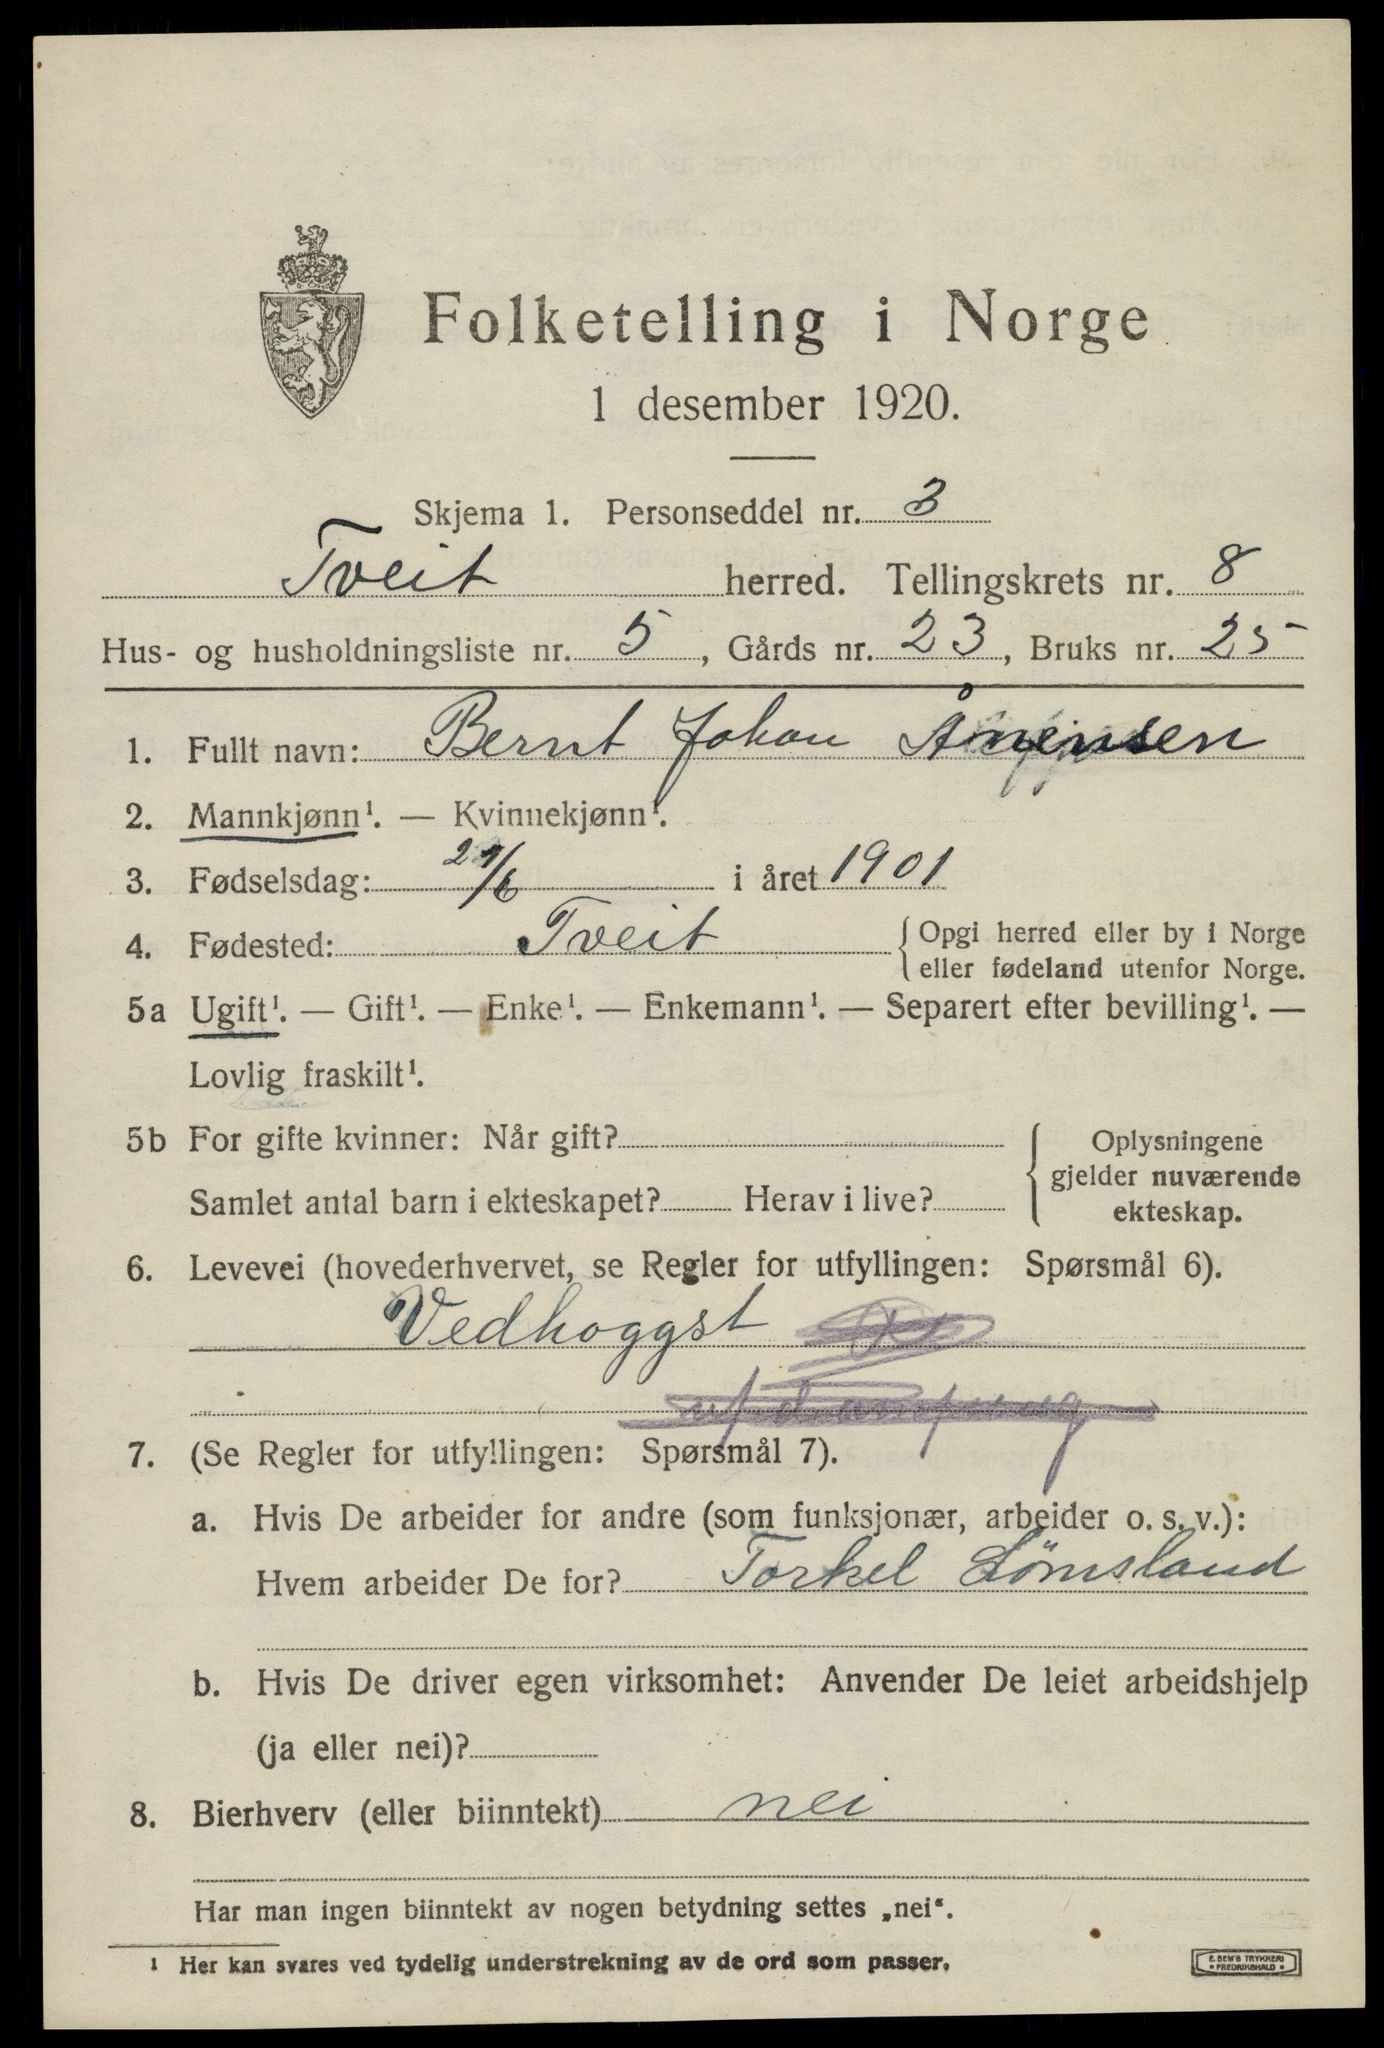 Folketelling i Norge
1 desember 1920.
Skjema 1. Personseddel nr. 3
Tveit herred. Tellingskrets nr. 8
Hus- og husholdningsliste nr. 5, Gårds nr. 23, Bruks nr. 25
1. Fullt navn: Bernt Johan Ånensen
2. Mannkjønn¹. — Kvinnekjønn¹.
3. Fødselsdag: 27/6 i året 1901
4. Fødested: Tveit { Opgi herred eller by i Norge
eller fødeland utenfor Norge.
5a Ugift¹. — Gift¹. — Enke¹. — Enkemann¹. — Separert efter bevilling¹. —
Lovlig fraskilt¹.
5b For gifte kvinner: Når gift? { Oplysningene
gjelder nuværende
Samlet antal barn i ekteskapet? Herav i live? ekteskap.
6. Levevei (hovederhvervet, se Regler for utfyllingen: Spørsmål 6).
Vedhoggst
7. (Se Regler for utfyllingen: Spørsmål 7).
a. Hvis De arbeider for andre (som funksjonær, arbeider o. s. v.):
Hvem arbeider De for? Torkel Lømsland
b. Hvis De driver egen virksomhet: Anvender De leiet arbeidshjelp
(ja eller nei)?
8. Bierhverv (eller biinntekt) nei
Har man ingen biinntekt av nogen betydning settes „nei“.
¹ Her kan svares ved tydelig understrekning av de ord som passer.
E. SEM'S TRYKKERI
• FREDRIKSHALD •